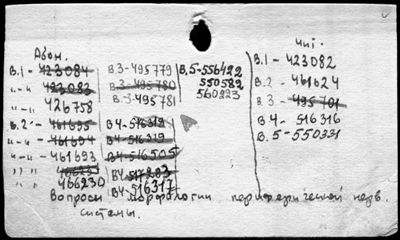 Абон.
В.1 - 423084
"-" 423083
"-" 426758
В.2 - 461695
"-" 461694
"-" 461693
466230
В3-495779
В3-495780
В3-495781
В4-516318
В4-516319
В4-516505
В4-517283
В4-516317
В.5-556422
550582
560223
В.1 - 423082
В.2 - 461624
В.3 - 495701
В4 - 516316
В.5 - 550331
Вопросы морфологии периферической нерв.
системы.